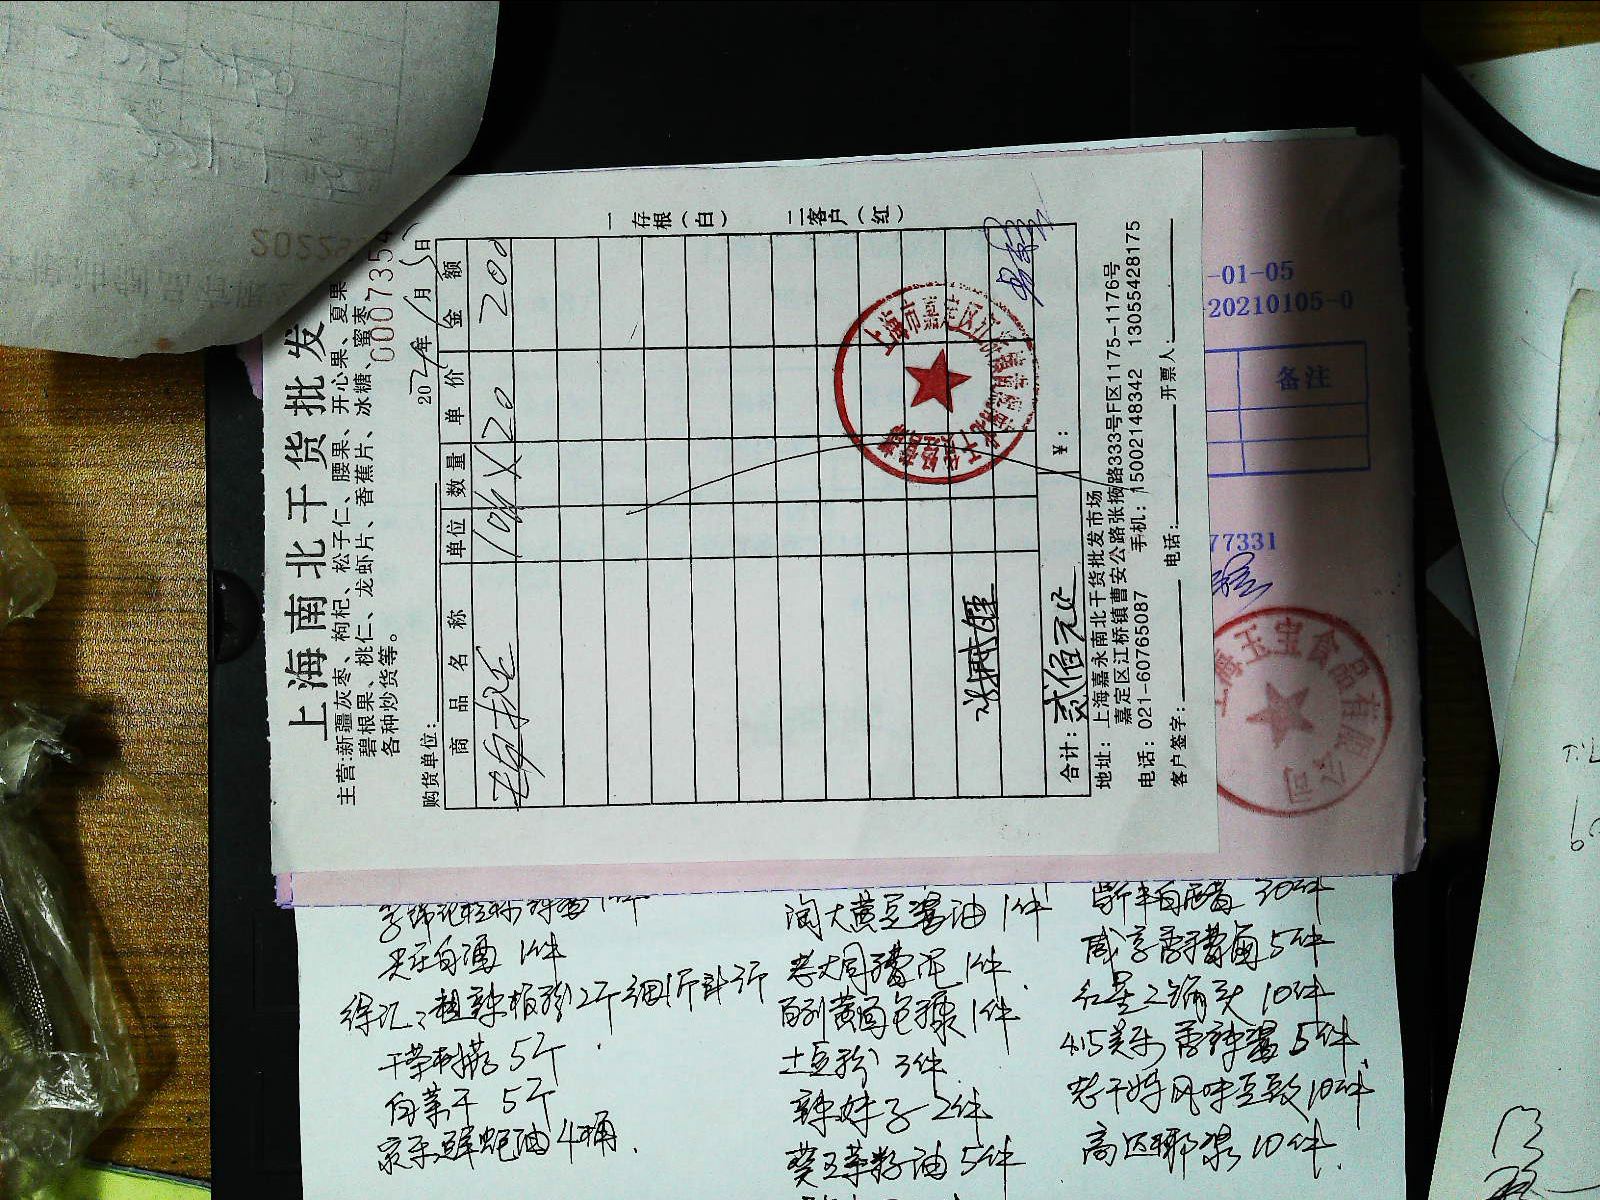 上海南北干货批发
主营:新疆灰枣、枸杞、松子仁、腰果、开心果、夏果
碧根果、桃仁、龙虾片、香蕉片、冰糖、蜜枣
各种炒货等。
000735
购货单位:
2021年1月5日
商品名称 单位 数量 单价 金额
10斤X20 200
一存根(白)
二客户(红)
合计: 贰佰元正 ¥:
地址: 上海嘉永南北干货批发市场
嘉定区江桥镇曹安公路张掖路333号F区1175-1176号
电话: 021-60765087 手机: 15002148342 13055428175
客户签字: 电话: 开票人:
上海市嘉定区江桥镇
-01-05
20210105-0
备注
77331
上海玉宝食品有限公司
白酒 1件
徐汇:粗辣椒粉2斤细1斤计3斤
5斤
白菜干 5斤
蚝油4桶
淘大黄豆酱油 1件
老大同糟泥 1件
1件
土豆粉 3件
辣妹子 2件
菜籽油 5件
白醋 30件
咸亨香糟卤 5件
红星二锅头 10件
415美乐香辣酱 5件
老干妈风味豆豉 10件
高达椰浆 10件